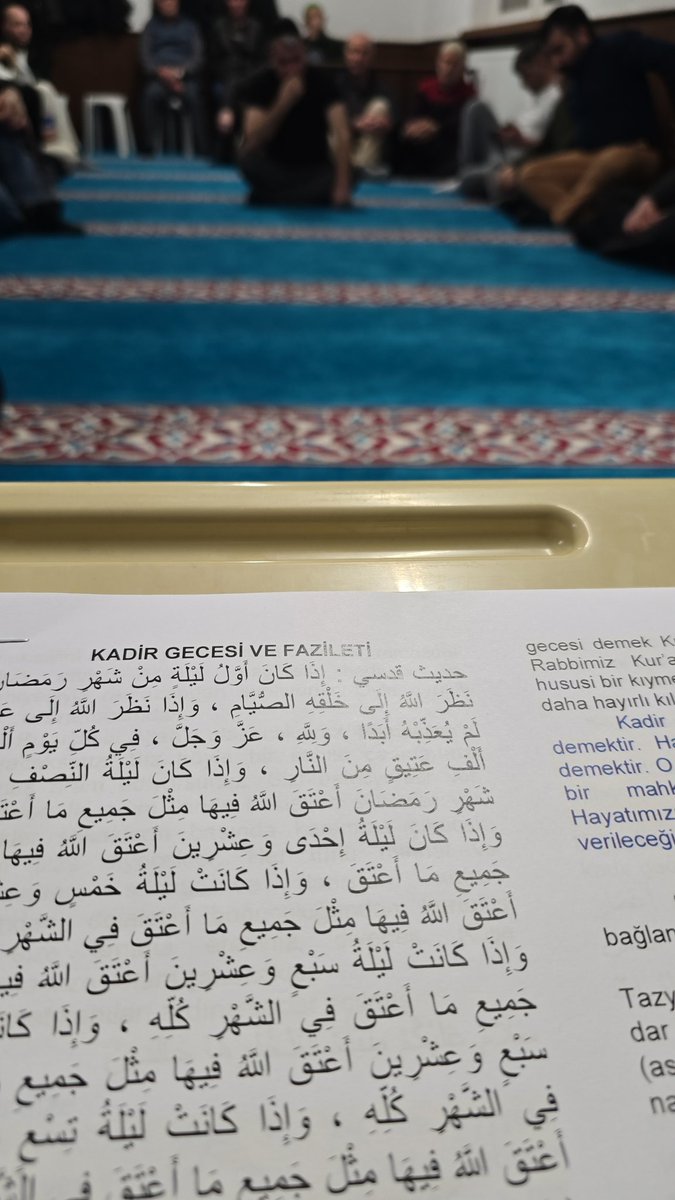 KADİR GECESİ VE FAZİLETİ
حديث قدسي : إِذَا كَانَ أَوَّلُ لَيْلَةٍ مِنْ شَهْرِ رَمَضَانَ
نَظَرَ اللهُ إِلَى خَلْقِهِ الصُّيَّامِ ، وَإِذَا نَظَرَ اللهُ إِلَى
لَمْ يُعَذِّبْهُ أَبَدًا ، وَلِلهِ ، عَزَّ وَجَلَّ ، فِي كُلِّ يَوْمٍ
أَلْفِ عَتِيقٍ مِنَ النَّارِ ، وَإِذَا كَانَ لَيْلَةُ النِّصْفِ
شَهْرِ رَمَضَانَ أَعْتَقَ اللهُ فِيهَا مِثْلَ جَمِيعِ مَا
وَإِذَا كَانَ لَيْلَةُ إِحْدَى وَعِشْرِينَ أَعْتَقَ اللهُ فِيهَا
جَمِيعِ مَا أَعْتَقَ ، وَإِذَا كَانَتْ لَيْلَةُ خَمْسٍ
أَعْتَقَ اللهُ فِيهَا مِثْلَ جَمِيعِ مَا أَعْتَقَ فِي الشَّهْرِ
وَإِذَا كَانَتْ لَيْلَةُ سَبْعٍ وَعِشْرِينَ أَعْتَقَ اللهُ
جَمِيعِ مَا أَعْتَقَ فِي الشَّهْرِ كُلِّهِ ، وَإِذَا
سَبْعٍ وَعِشْرِينَ أَعْتَقَ اللهُ فِيهَا مِثْلَ جَمِيعِ
فِي الشَّهْرِ كُلِّهِ ، وَإِذَا كَانَتْ لَيْلَةُ تِسْعٍ
أَعْتَقَ اللهُ فِيهَا مِثْلَ جَمِيعِ مَا أَعْتَقَ فِي
gecesi demek
Rabbimiz Kur'a
hususi bir kıyme
daha hayırlı kıl
Kadir
demektir. Ha
demektir. O
bir mahk
Hayatımız
verileceği
bağlan
Tazy
dar
(as
na